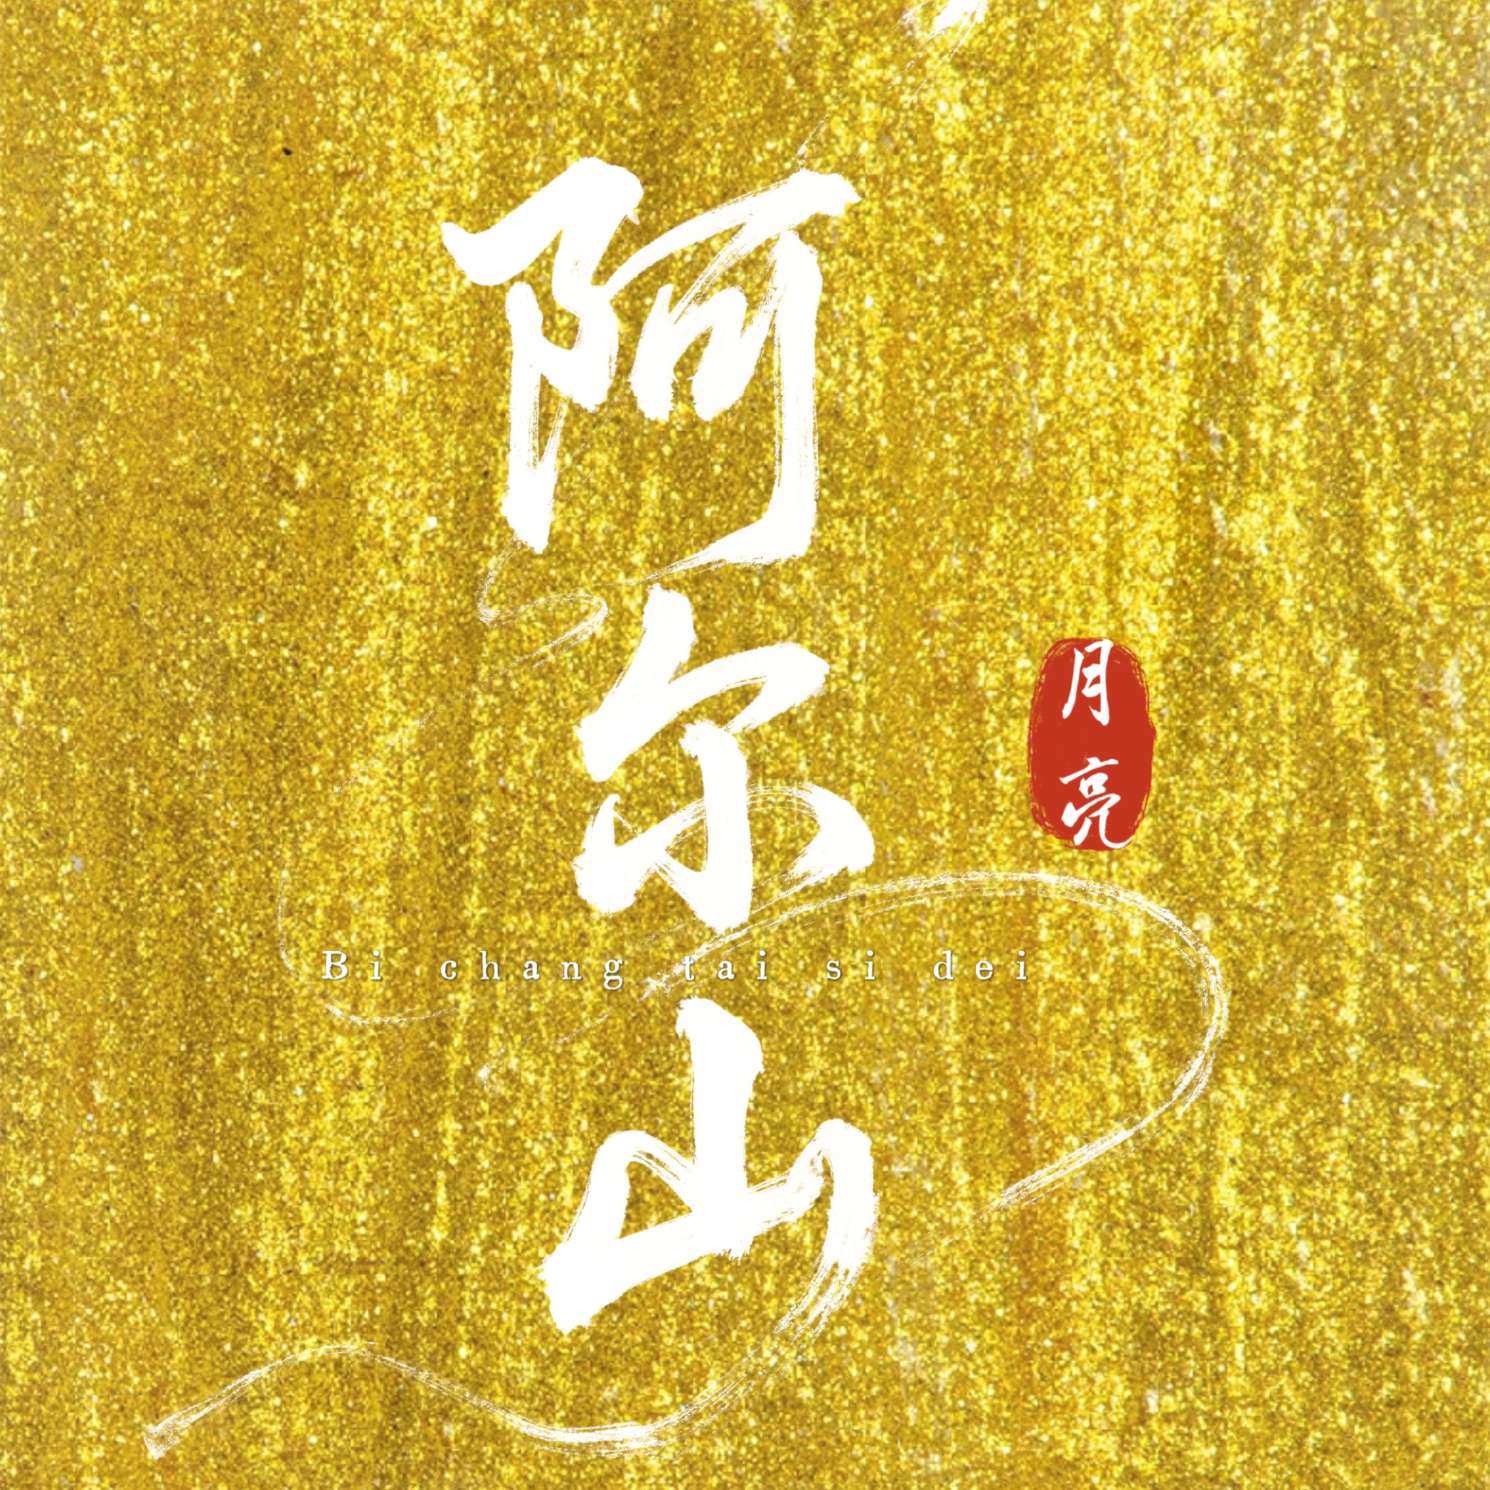 阿尔山
月亮
Bi chang tai si dei